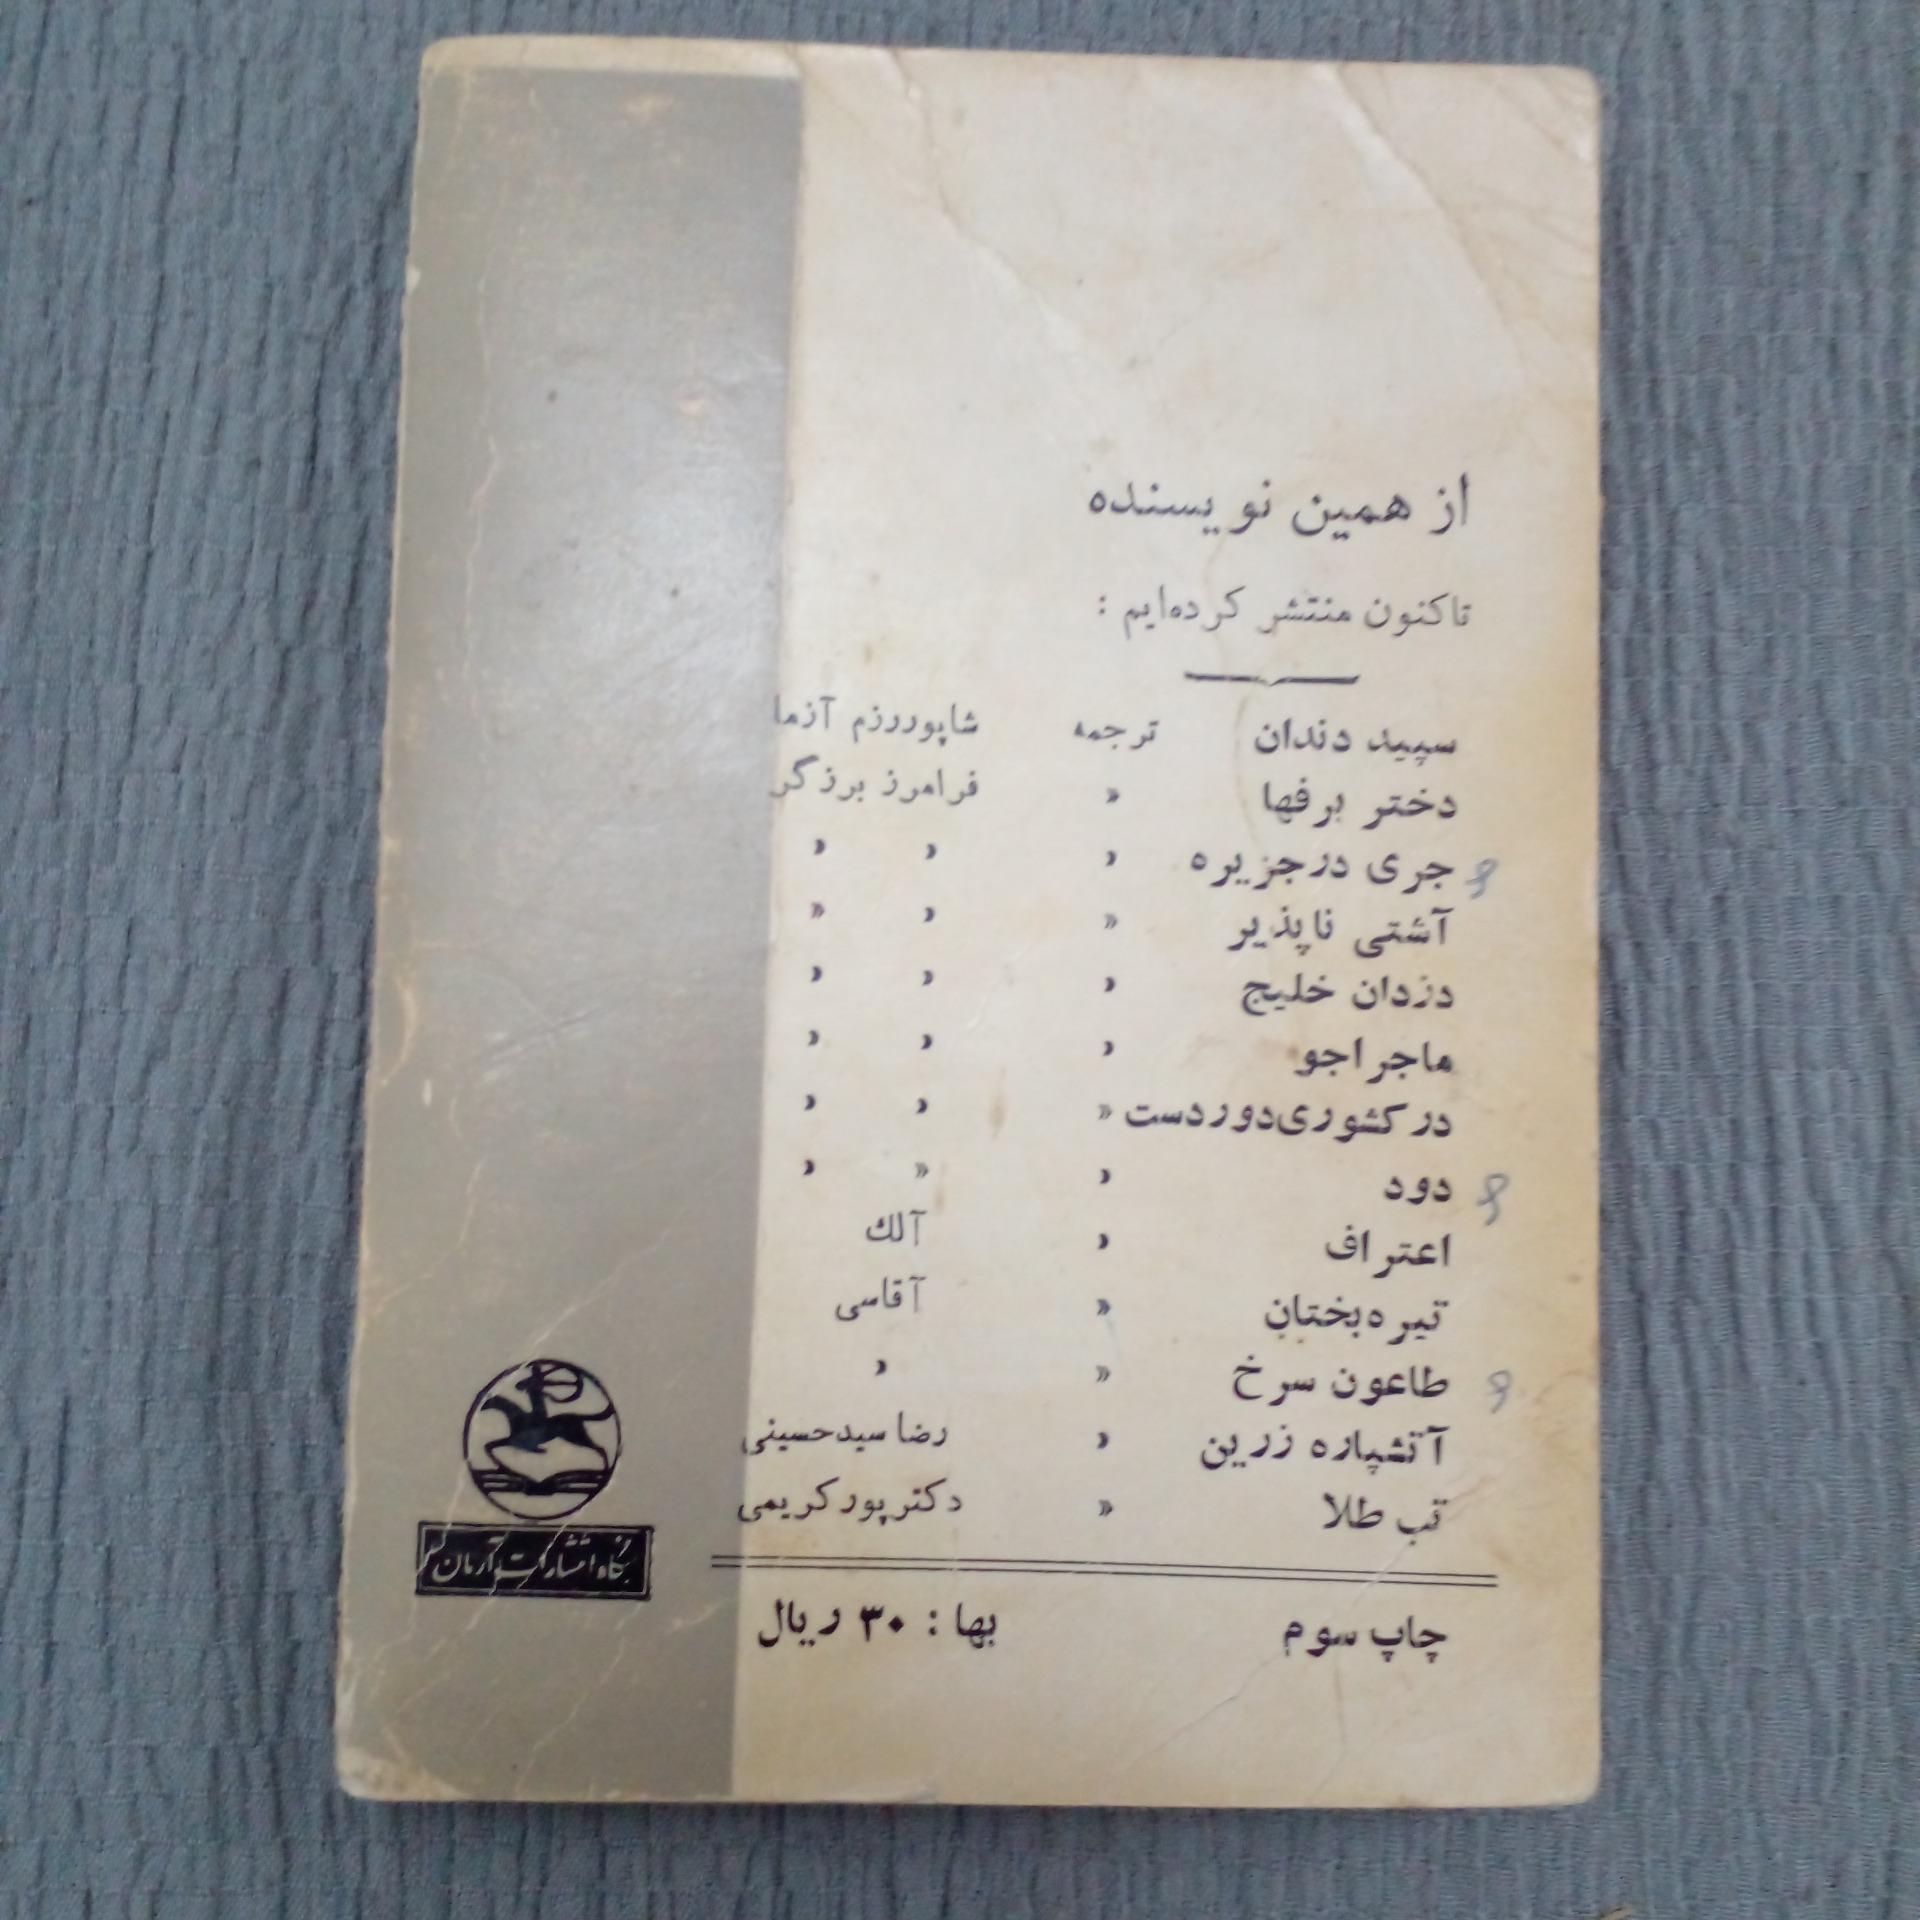 از همین نویسنده
تاکنون منتشر کرده‌ایم :
سپید دندان ترجمه شاپوررزم آزما
دختر برفها » فرامرز برزگر
جری درجزیره » » »
آشتی ناپذیر » » »
دزدان خلیج » » »
ماجراجو » » »
در کشوری دوردست » » »
دود » » »
اعتراف » آلك
تیره‌بختان » آقاسی
طاعون سرخ » »
آتشپاره زرین » رضا سیدحسینی
تب طلا » دکترپور کریمی
چاپ سوم بها : ۳۰ ریال
بنگاه انتشارات آرمان